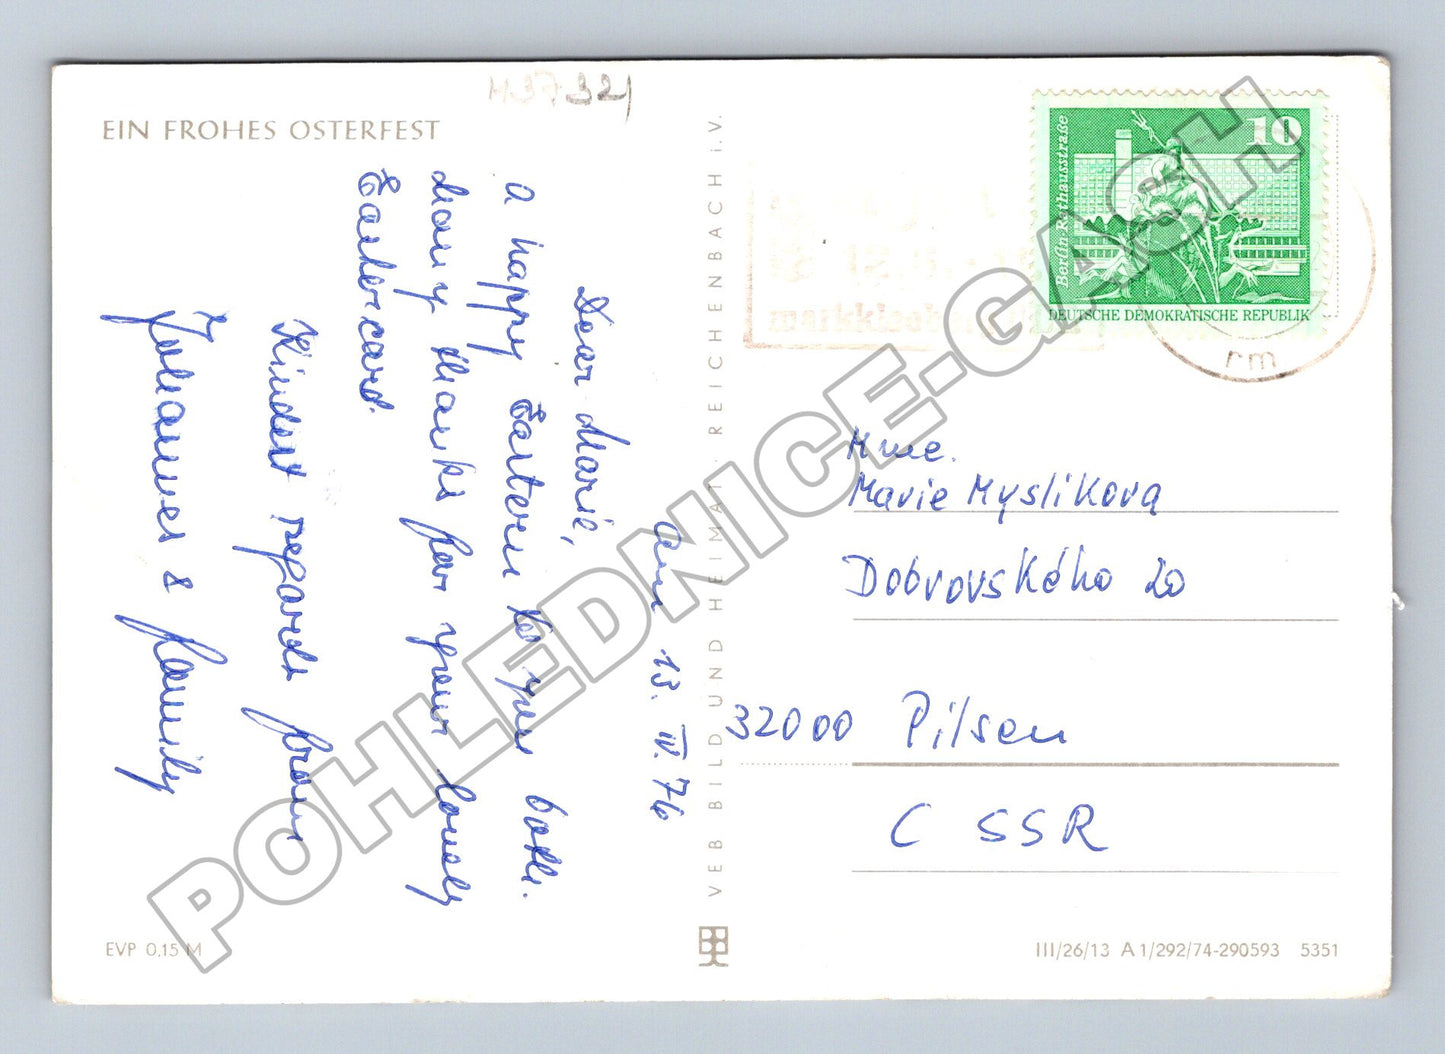 H37321
EIN FROHES OSTERFEST
am 13. IV. 76
Dear Marie,
a happy Eastern to you both.
Many thanks for your lovely
Eastercard.
Kindest regards from
Johannes & family
EVP 0,15 M
VEB BILD UND HEIMAT REICHENBACH i. V.
10
Berlin-Rathausstraße
DEUTSCHE DEMOKRATISCHE REPUBLIK
rm
Mme.
Marie Myslikova
Dobrovského 20
32000 Pilsen
CSSR
III/26/13 A 1/292/74-290593 5351
POHLEDNICE-GASH